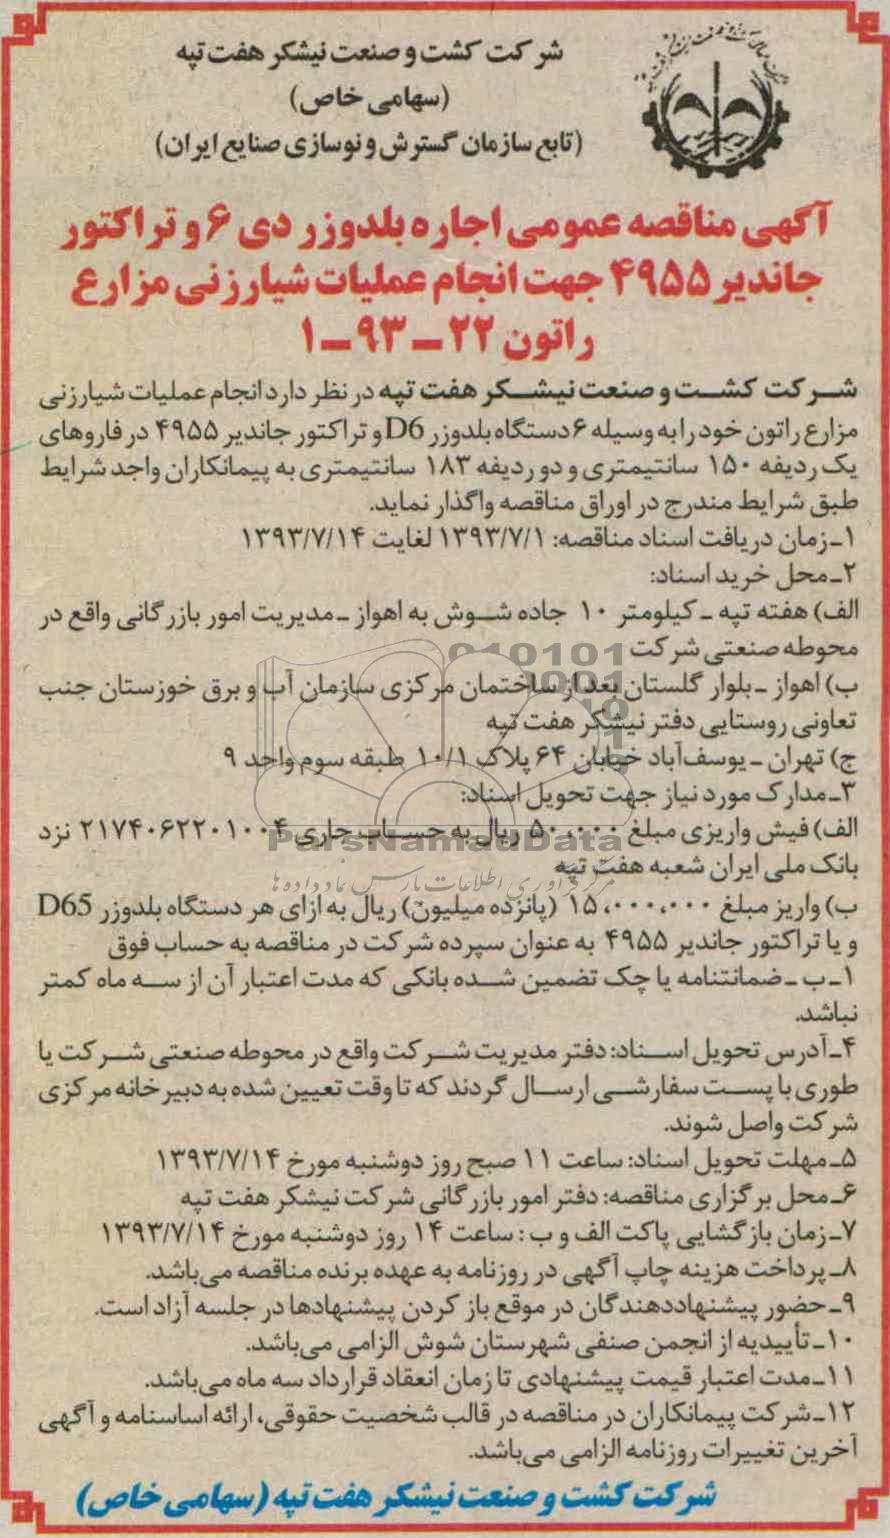 شرکت کشت و صنعت نیشکر هفت تپه
(سهامی خاص)
(تابع سازمان گسترش و نوسازی صنایع ایران)
آگهی مناقصه عمومی اجاره بلدوزر دی ۶ و تراکتور
جاندیر ۴۹۵۵ جهت انجام عملیات شیارزنی مزارع
راتون ۲۲-۹۳-۱
شرکت کشت و صنعت نیشکر هفت تپه در نظر دارد انجام عملیات شیارزنی
مزارع راتون خود را به وسیله ۶ دستگاه بلدوزر D6 و تراکتور جاندیر ۴۹۵۵ در فاروهای
یک ردیفه ۱۵۰ سانتیمتری و دو ردیفه ۱۸۳ سانتیمتری به پیمانکاران واجد شرایط
طبق شرایط مندرج در اوراق مناقصه واگذار نماید.
۱-زمان دریافت اسناد مناقصه: ۱۳۹۳/۷/۱ لغایت ۱۳۹۳/۷/۱۴
۲-محل خرید اسناد:
الف) هفته تپه - کیلومتر ۱۰ جاده شوش به اهواز - مدیریت امور بازرگانی واقع در
محوطه صنعتی شرکت
ب) اهواز - بلوار گلستان بعد از ساختمان مرکزی سازمان آب و برق خوزستان جنب
تعاونی روستایی دفتر نیشکر هفت تپه
ج) تهران - یوسف‌آباد خیابان ۶۴ پلاک ۱۰/۱ طبقه سوم واحد ۹
۳-مدارک مورد نیاز جهت تحویل اسناد:
الف) فیش واریزی مبلغ ۵۰،۰۰۰ ریال به حساب جاری ۲۱۷۴۰۶۲۲۰۱۰۰۴ نزد
بانک ملی ایران شعبه هفت تپه
ب) واریز مبلغ ۱۵،۰۰۰،۰۰۰ (پانزده میلیون) ریال به ازای هر دستگاه بلدوزر D65
و یا تراکتور جاندیر ۴۹۵۵ به عنوان سپرده شرکت در مناقصه به حساب فوق
۱-ب - ضمانتنامه یا چک تضمین شده بانکی که مدت اعتبار آن از سه ماه کمتر
نباشد.
۴-آدرس تحویل اسناد: دفتر مدیریت شرکت واقع در محوطه صنعتی شرکت یا
طوری با پست سفارشی ارسال گردند که تا وقت تعیین شده به دبیرخانه مرکزی
شرکت واصل شوند.
۵-مهلت تحویل اسناد: ساعت ۱۱ صبح روز دوشنبه مورخ ۱۳۹۳/۷/۱۴
۶-محل برگزاری مناقصه: دفتر امور بازرگانی شرکت نیشکر هفت تپه
۷-زمان بازگشایی پاکت الف و ب: ساعت ۱۴ روز دوشنبه مورخ ۱۳۹۳/۷/۱۴
۸-پرداخت هزینه چاپ آگهی در روزنامه به عهده برنده مناقصه می‌باشد.
۹-حضور پیشنهاددهندگان در موقع باز کردن پیشنهادها در جلسه آزاد است.
۱۰-تأییدیه از انجمن صنفی شهرستان شوش الزامی می‌باشد.
۱۱-مدت اعتبار قیمت پیشنهادی تا زمان انعقاد قرارداد سه ماه می‌باشد.
۱۲-شرکت پیمانکاران در مناقصه در قالب شخصیت حقوقی، ارائه اساسنامه و آگهی
آخرین تغییرات روزنامه الزامی می‌باشد.
شرکت کشت و صنعت نیشکر هفت تپه (سهامی خاص)
ParsNamadData